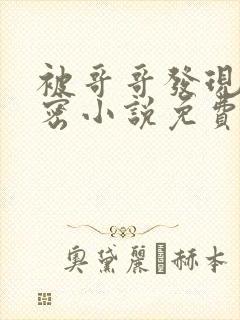 被哥哥發現
密小説免費
奧黛麗·赫本